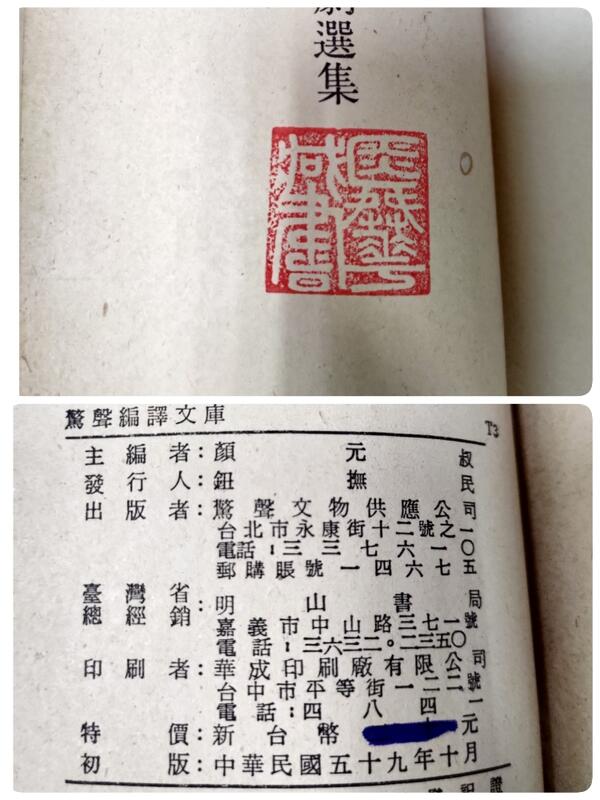 選集
藏書
驚聲編譯文庫 T3
主編者:顏元叔
發行人:鈕撫民
出版者:驚聲文物供應公司
台北市永康街十二號之一
電話:三三七六一〇
郵購賬號一四六七五
臺灣省總經銷:明山書局
嘉義市中山路三七一號
電話:三六三二。二三五〇
印刷者:華成印刷廠有限公司
台中市平等街一二二號
電話:四八四一
特價:新台幣元
初版:中華民國五十九年十月